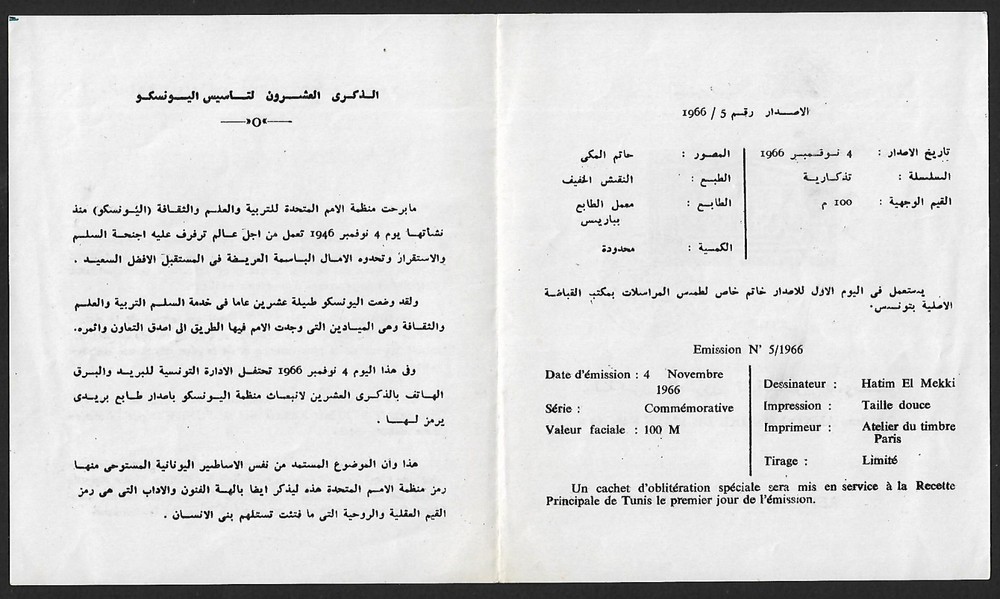 الذكرى العشرون لتاسيس اليونسكو
مابرحت منظمة الامم المتحدة للتربية والعلم والثقافة (اليونسكو) منذ
نشاتها يوم 4 نوفمبر 1946 تعمل من اجل عالم ترفرف عليه اجنحة السلم
والاستقرار وتحدوه الامال الباسمة العريضة فى المستقبل الافضل السعيد .
ولقد وضعت اليونسكو طيلة عشرين عاما فى خدمة السلم التربية والعلم
والثقافة وهى الميادين التى وجدت الامم فيها الطريق الى اصدق التعاون واثمره.
وفى هذا اليوم 4 نوفمبر 1966 تحتفل الادارة التونسية للبريد والبرق
الهاتف بالذكرى العشرين لانبعاث منظمة اليونسكو باصدار طابع بريدى
يرمز لها .
هذا وان الموضوع المستمد من نفس الاساطير اليونانية المستوحى منها
رمز منظمة الامم المتحدة هذه ليذكر ايضا بالهة الفنون والاداب التى هى رمز
القيم العقلية والروحية التى ما فتئت تستلهم بنى الانسان .
الاصدار رقم 5 / 1966
تاريخ الاصدار : 4 نوفمبر 1966
السلسلة : تذكارية
القيم الوجهية : 100 م
المصور : حاتم المكى
الطبع : النقش الخفيف
الطابع : معمل الطابع
بباريس
الكمية : محدودة
يستعمل فى اليوم الاول للاصدار خاتم خاص لطمس المراسلات بمكتب القباضة
الاصلية بتونس.
Emission N' 5/1966
Date d'émission : 4 Novembre
1966
Série : Commémorative
Valeur faciale : 100 M
Dessinateur : Hatim El Mekki
Impression : Taille douce
Imprimeur : Atelier du timbre
Paris
Tirage : Limité
Un cachet d'oblitération spéciale sera mis en service à la Recette
Principale de Tunis le premier jour de l'émission.